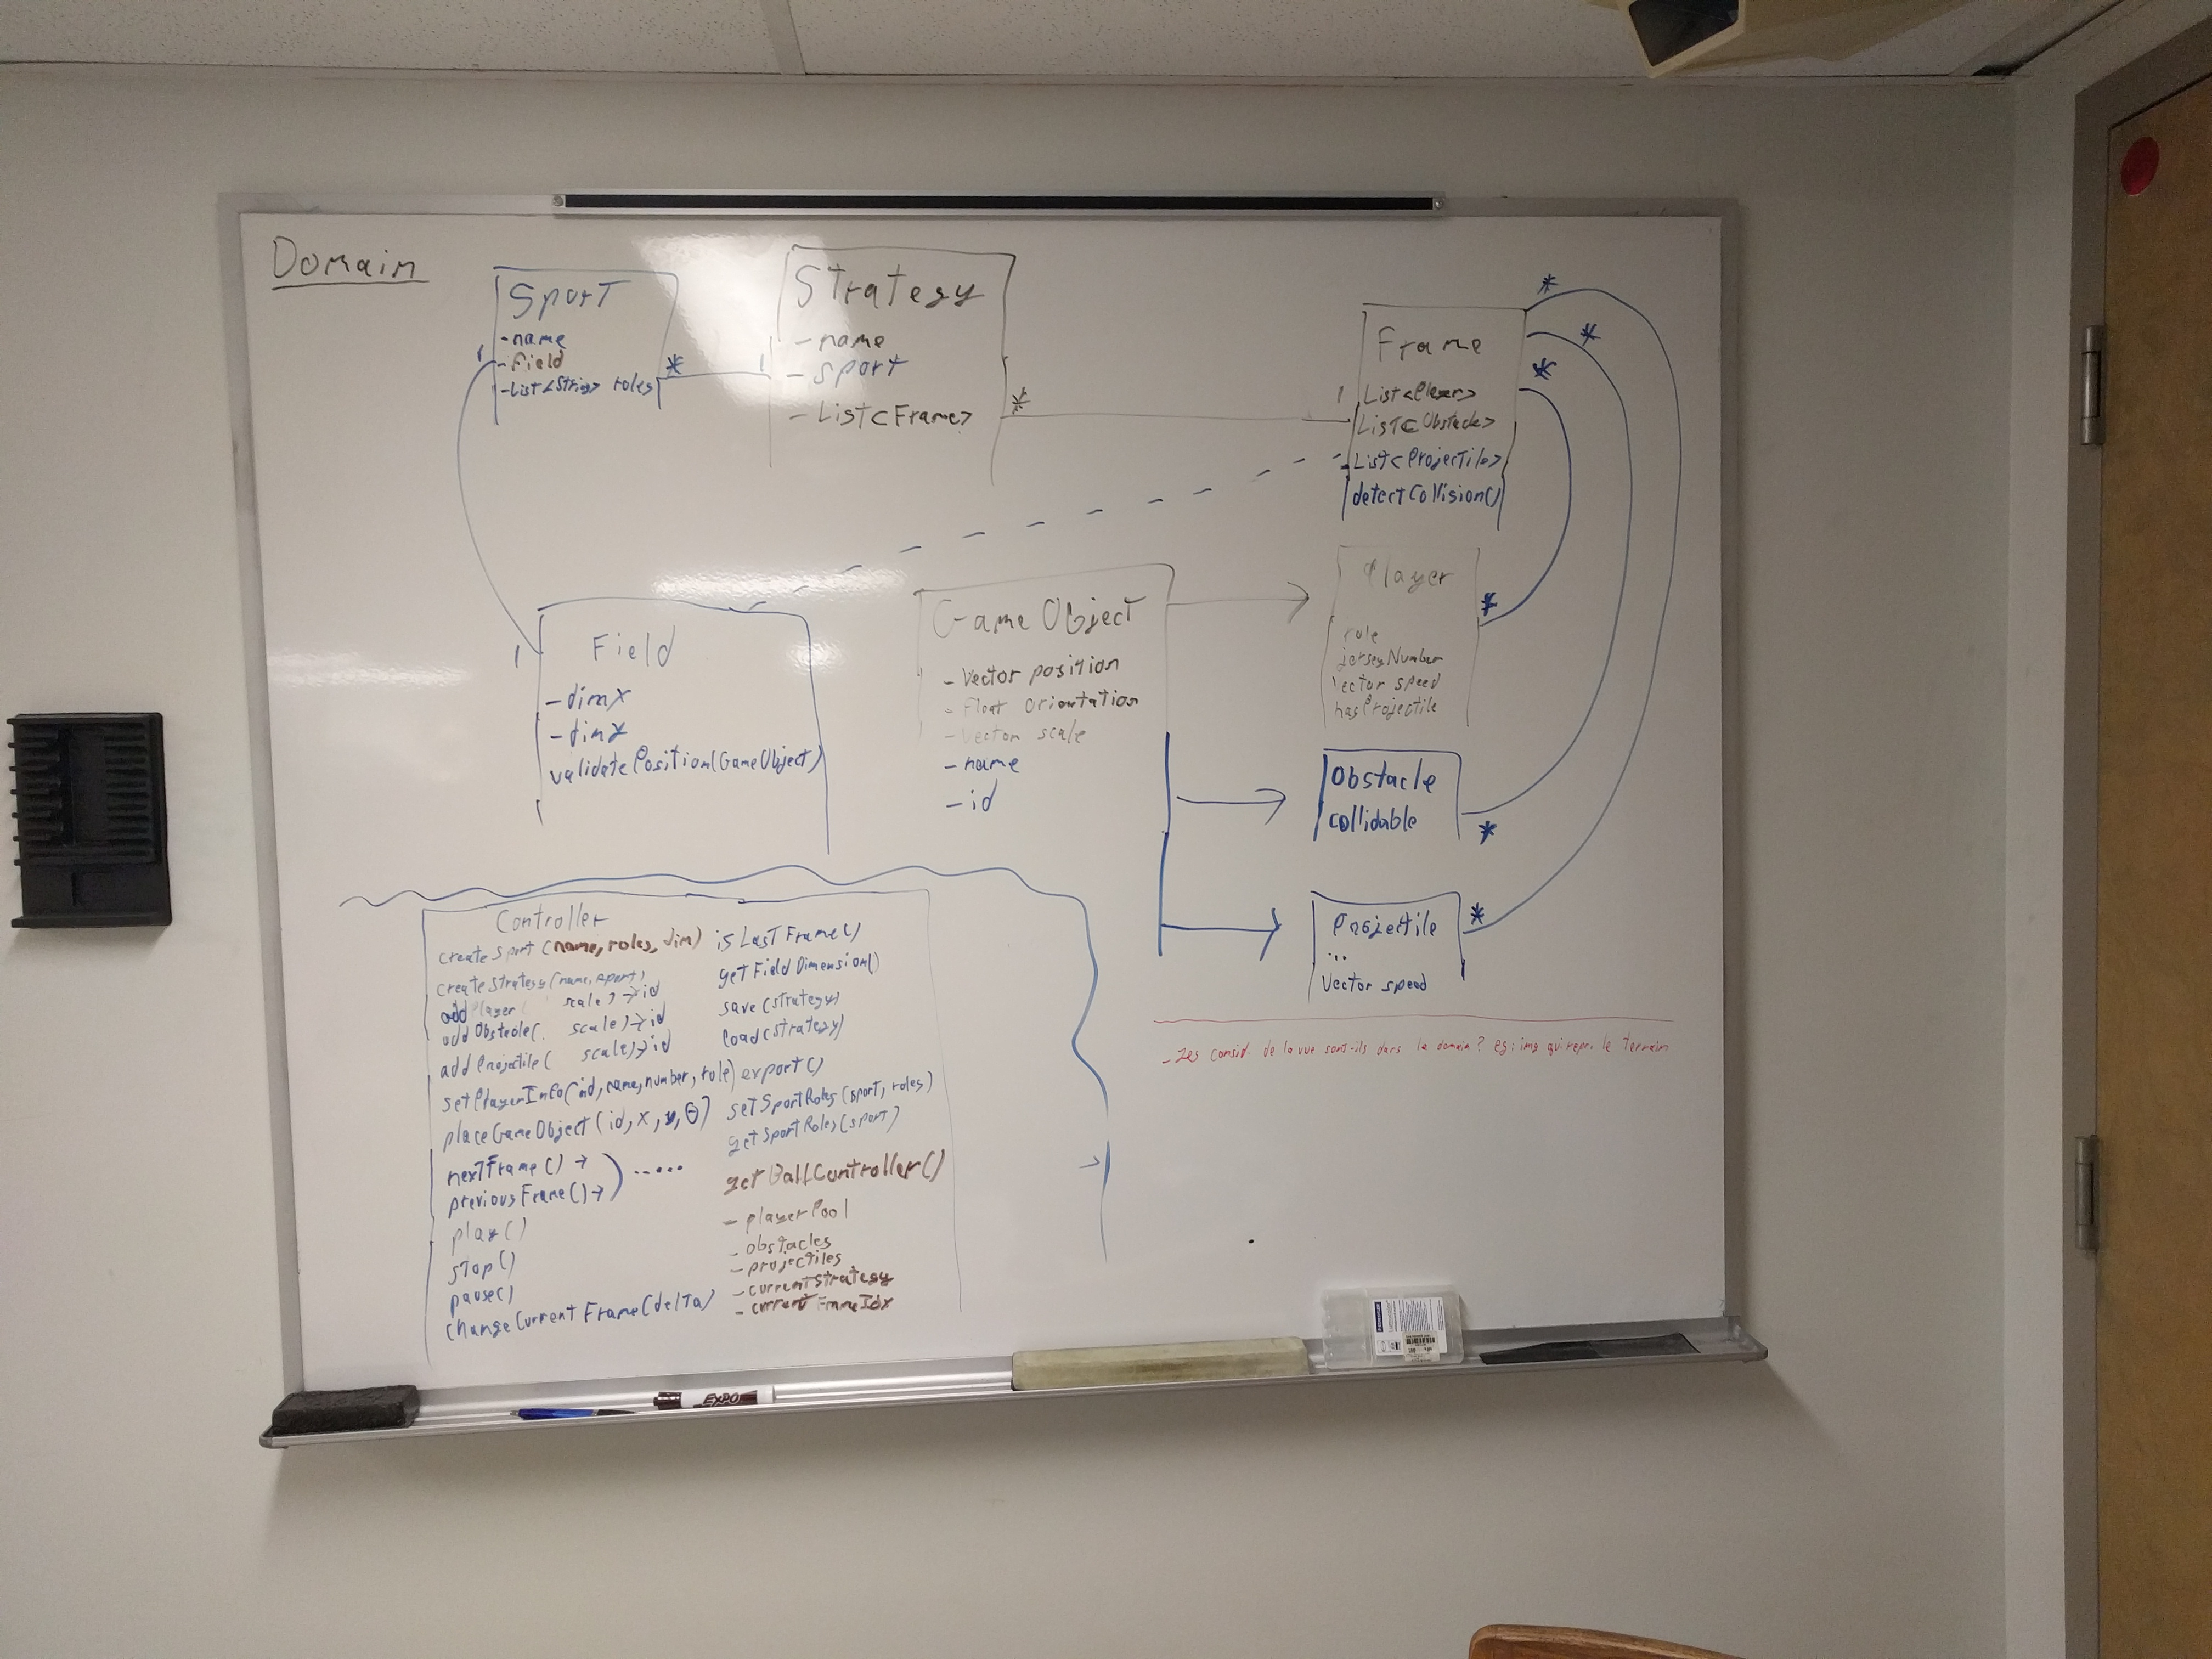 Domain
Sport
-name
-field
-List<String> roles
1
*
1
Strategy
-name
-sport
-List<Frame>
*
1
Frame
List<Player>
List<Obstacle>
List<Projectile>
detectCollision()
*
*
*
Field
-dimX
-dimY
validatePosition(GameObject)
1
GameObject
-Vector position
-Float orientation
-Vector scale
-name
-id
Player
role
jerseyNumber
Vector speed
hasProjectile
*
Obstacle
collidable
*
Projectile
...
Vector speed
*
-Les consid. de la vue sont-ils dans le domain? eg: img qui repr. le terrain
Controller
createSport(name, roles, dim)
createStrategy(name, sport)
addPlayer( scale)→id
addObstacle( scale)→id
addProjectile( scale)→id
setPlayerInfo(id, name, number, role)
placeGameObject(id, x, y, θ)
nextFrame()→
previousFrame()→
) .....
play()
stop()
pause()
changeCurrentFrame(delta)
isLastFrame()
getFieldDimension()
save(strategy)
load(strategy)
export()
setSportRoles(sport, roles)
getSportRoles(sport)
getBallController()
-playerPool
-obstacles
-projectiles
-currentStrategy
-currentFrameIdx
EXPO